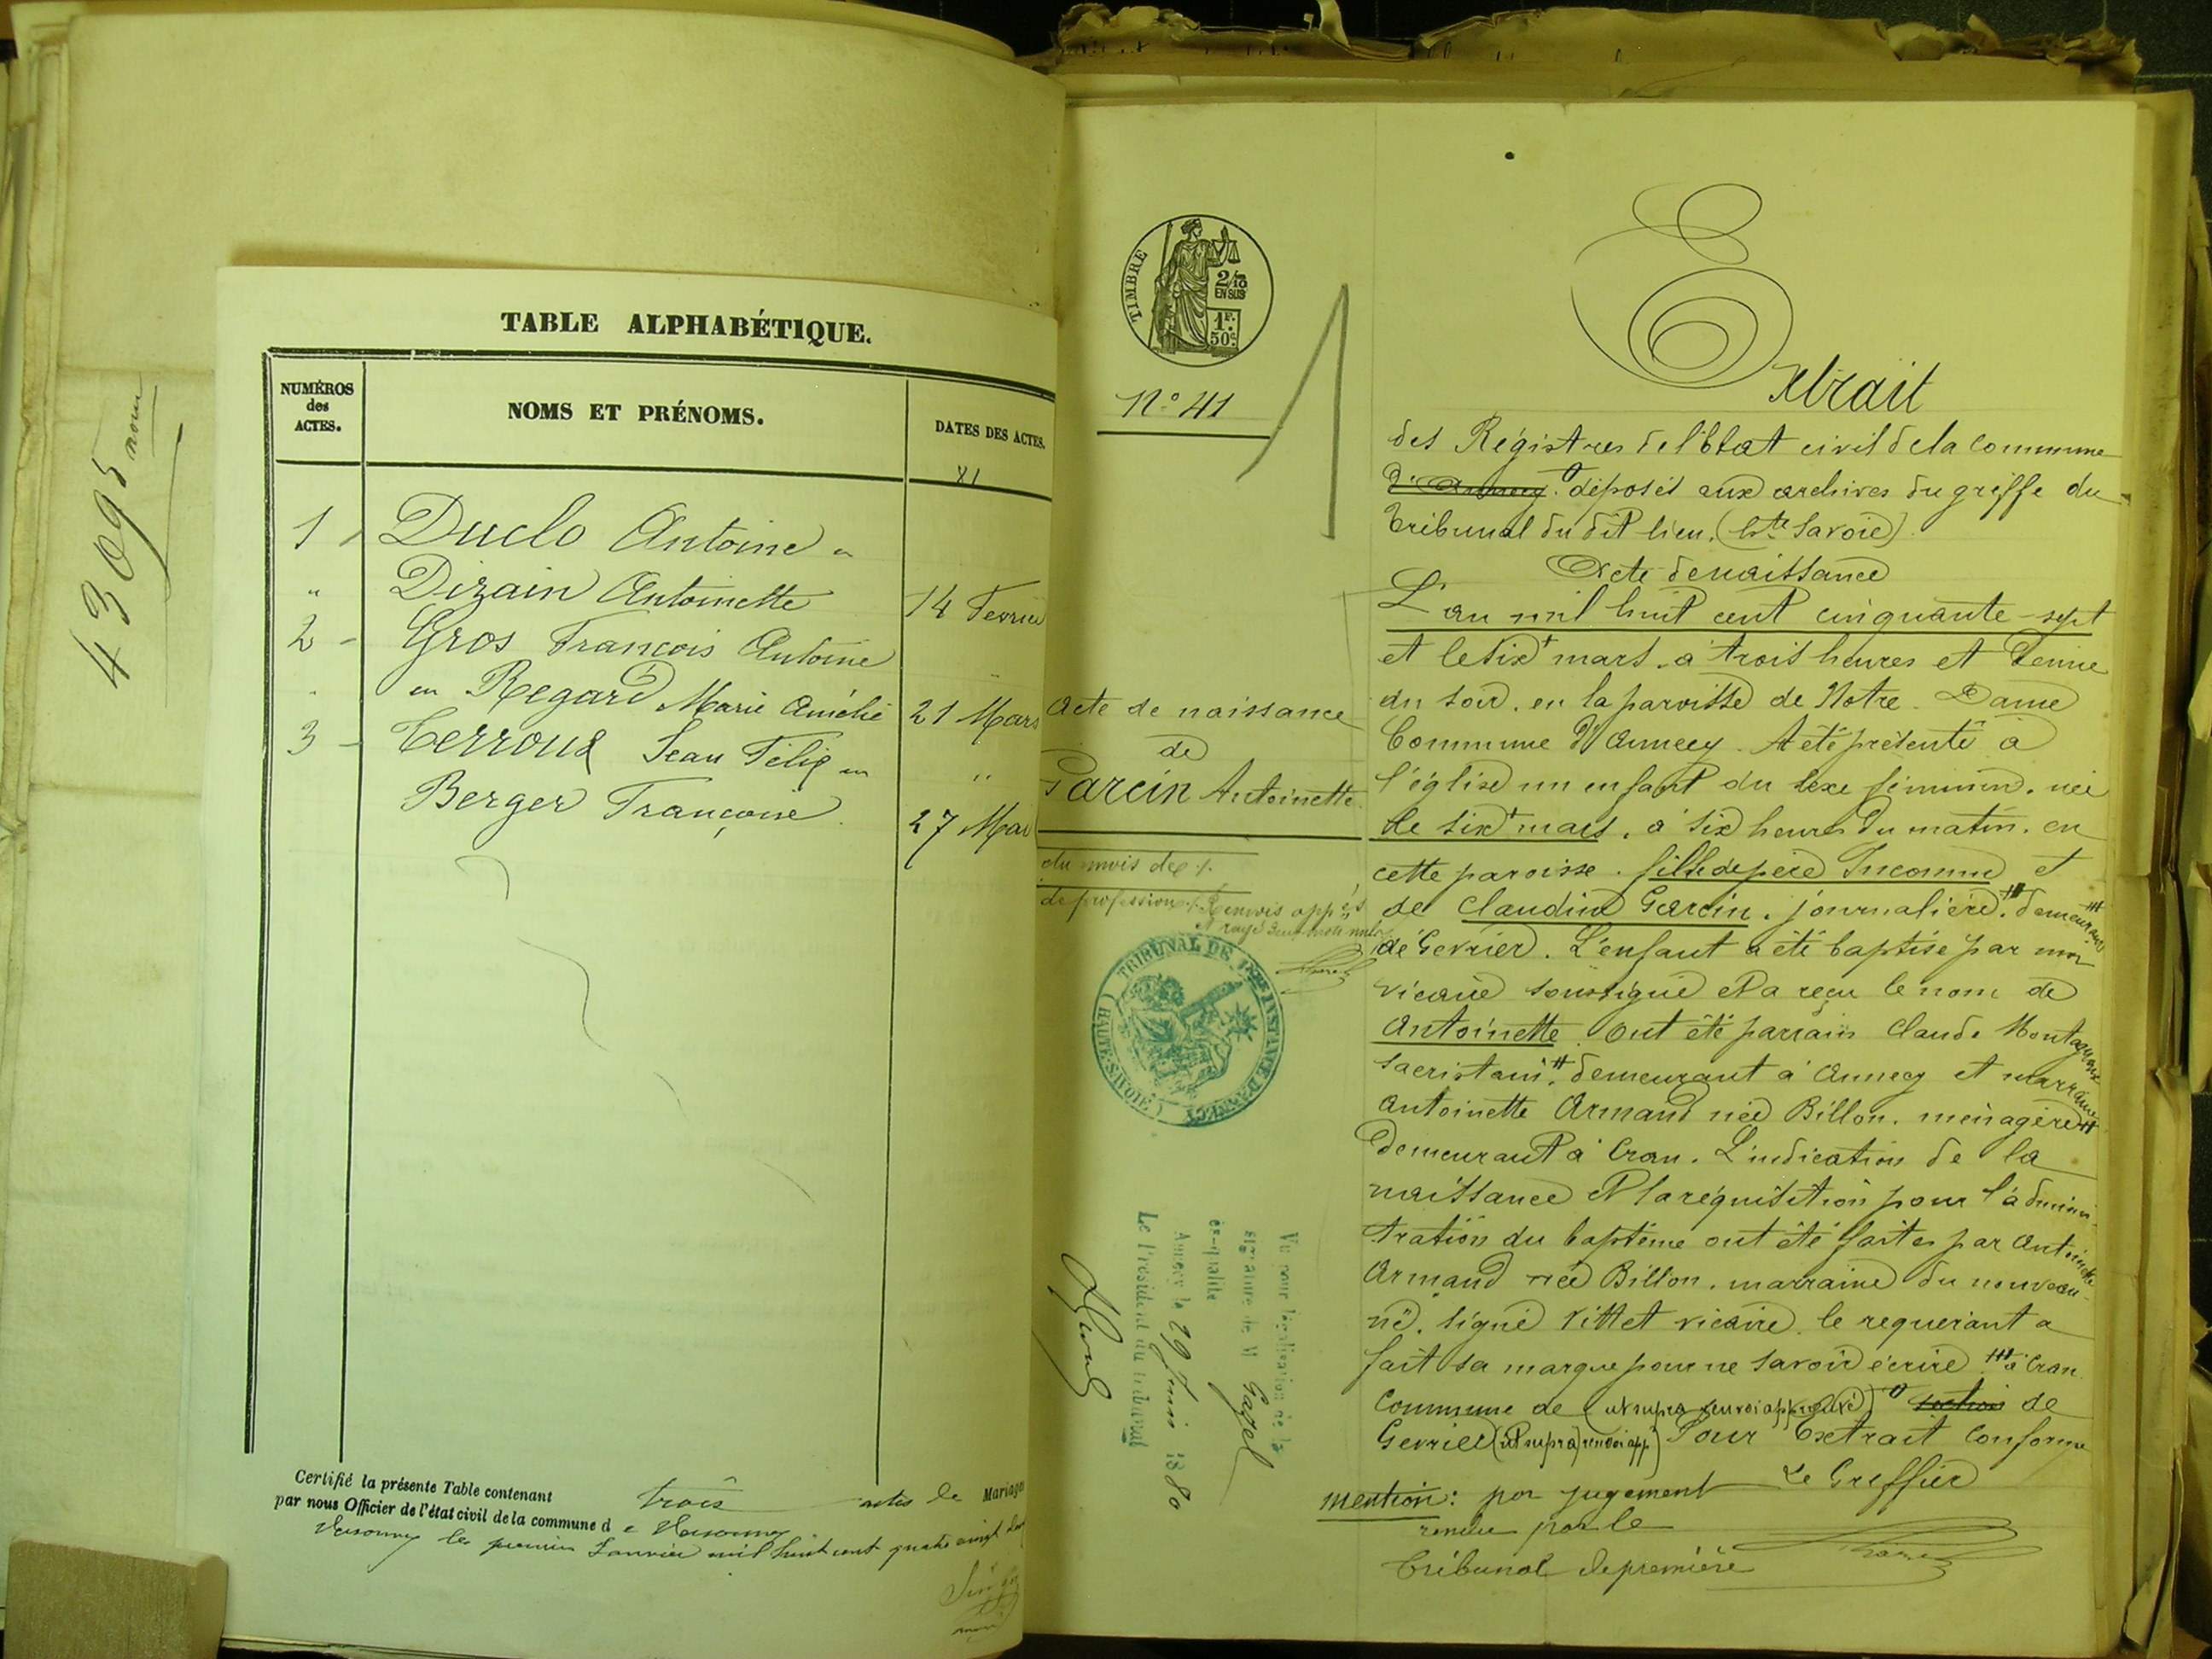 43095
TABLE ALPHABÉTIQUE.
NUMÉROS
des
ACTES.
NOMS ET PRÉNOMS.
DATES DES ACTES.
1
Duclo Antoine
"
Dizain Antoinette
14 Fevrier
2 -
Gros François Antoine
en Regard Marie Amélie
21 Mars
3 -
Terroux Jean Félix en
"
Berger Françoise
27 Mai
Certifié la présente Table contenant trois actes de Mariages
par nous Officier de l'état civil de la commune de
les premier Janvier mil huit cent quatre vingt
TIMBRE
2/10
EN SUS
1F.
50c.
N° 41
1
Acte de naissance
de
Garcin Antoinette.
du mois de
de profession Renvois app
et rayé
TRIBUNAL DE 1ère INSTANCE D'ANNECY
(HAUTE-SAVOIE)
Vu pour légalisation de la
signature de M Gazel
ès-qualité
Annecy le 29 Juin 1880
Le Président du tribunal
Extrait
des Régistres de l'Etat civil de la Commune
d'Annecy. déposés aux archives du greffe du
Tribunal du dit lieu. (hte Savoie)
Acte de naissance
L'an mil huit cent cinquante-sept
et le six mars. à trois heures et demie
du soir. en la paroisse de Notre Dame
Commune d'Annecy. A été présenté à
l'église un enfant du sexe féminin. né
le six mars. à six heures du matin. en
cette paroisse. fille de père Inconnu et
de Claudine Garcin. journalière. demeurant
de Gevrier. L'enfant a été baptisé par moi
vicaire soussigné et a reçu le nom de
Antoinette. Ont été parrain Claude Montagnoux
sacristain. demeurant à Annecy et marraine
Antoinette Armand née Billon. ménagère
demeurant à Cran. L'indication de la
naissance et la réquisition pour l'adminis-
tration du baptême ont été faites par Antoinette
Armand née Billon. marraine du nouveau-
né. signé Vittet vicaire. le requérant a
fait sa marque pour ne savoir écrire à Cran
Commune de (ut supra renvoi approuvé) section de
Gevrier (ut supra) renvoi app) Pour Extrait Conforme
Le Greffier
mention: par jugement
rendu par le
Tribunal de première